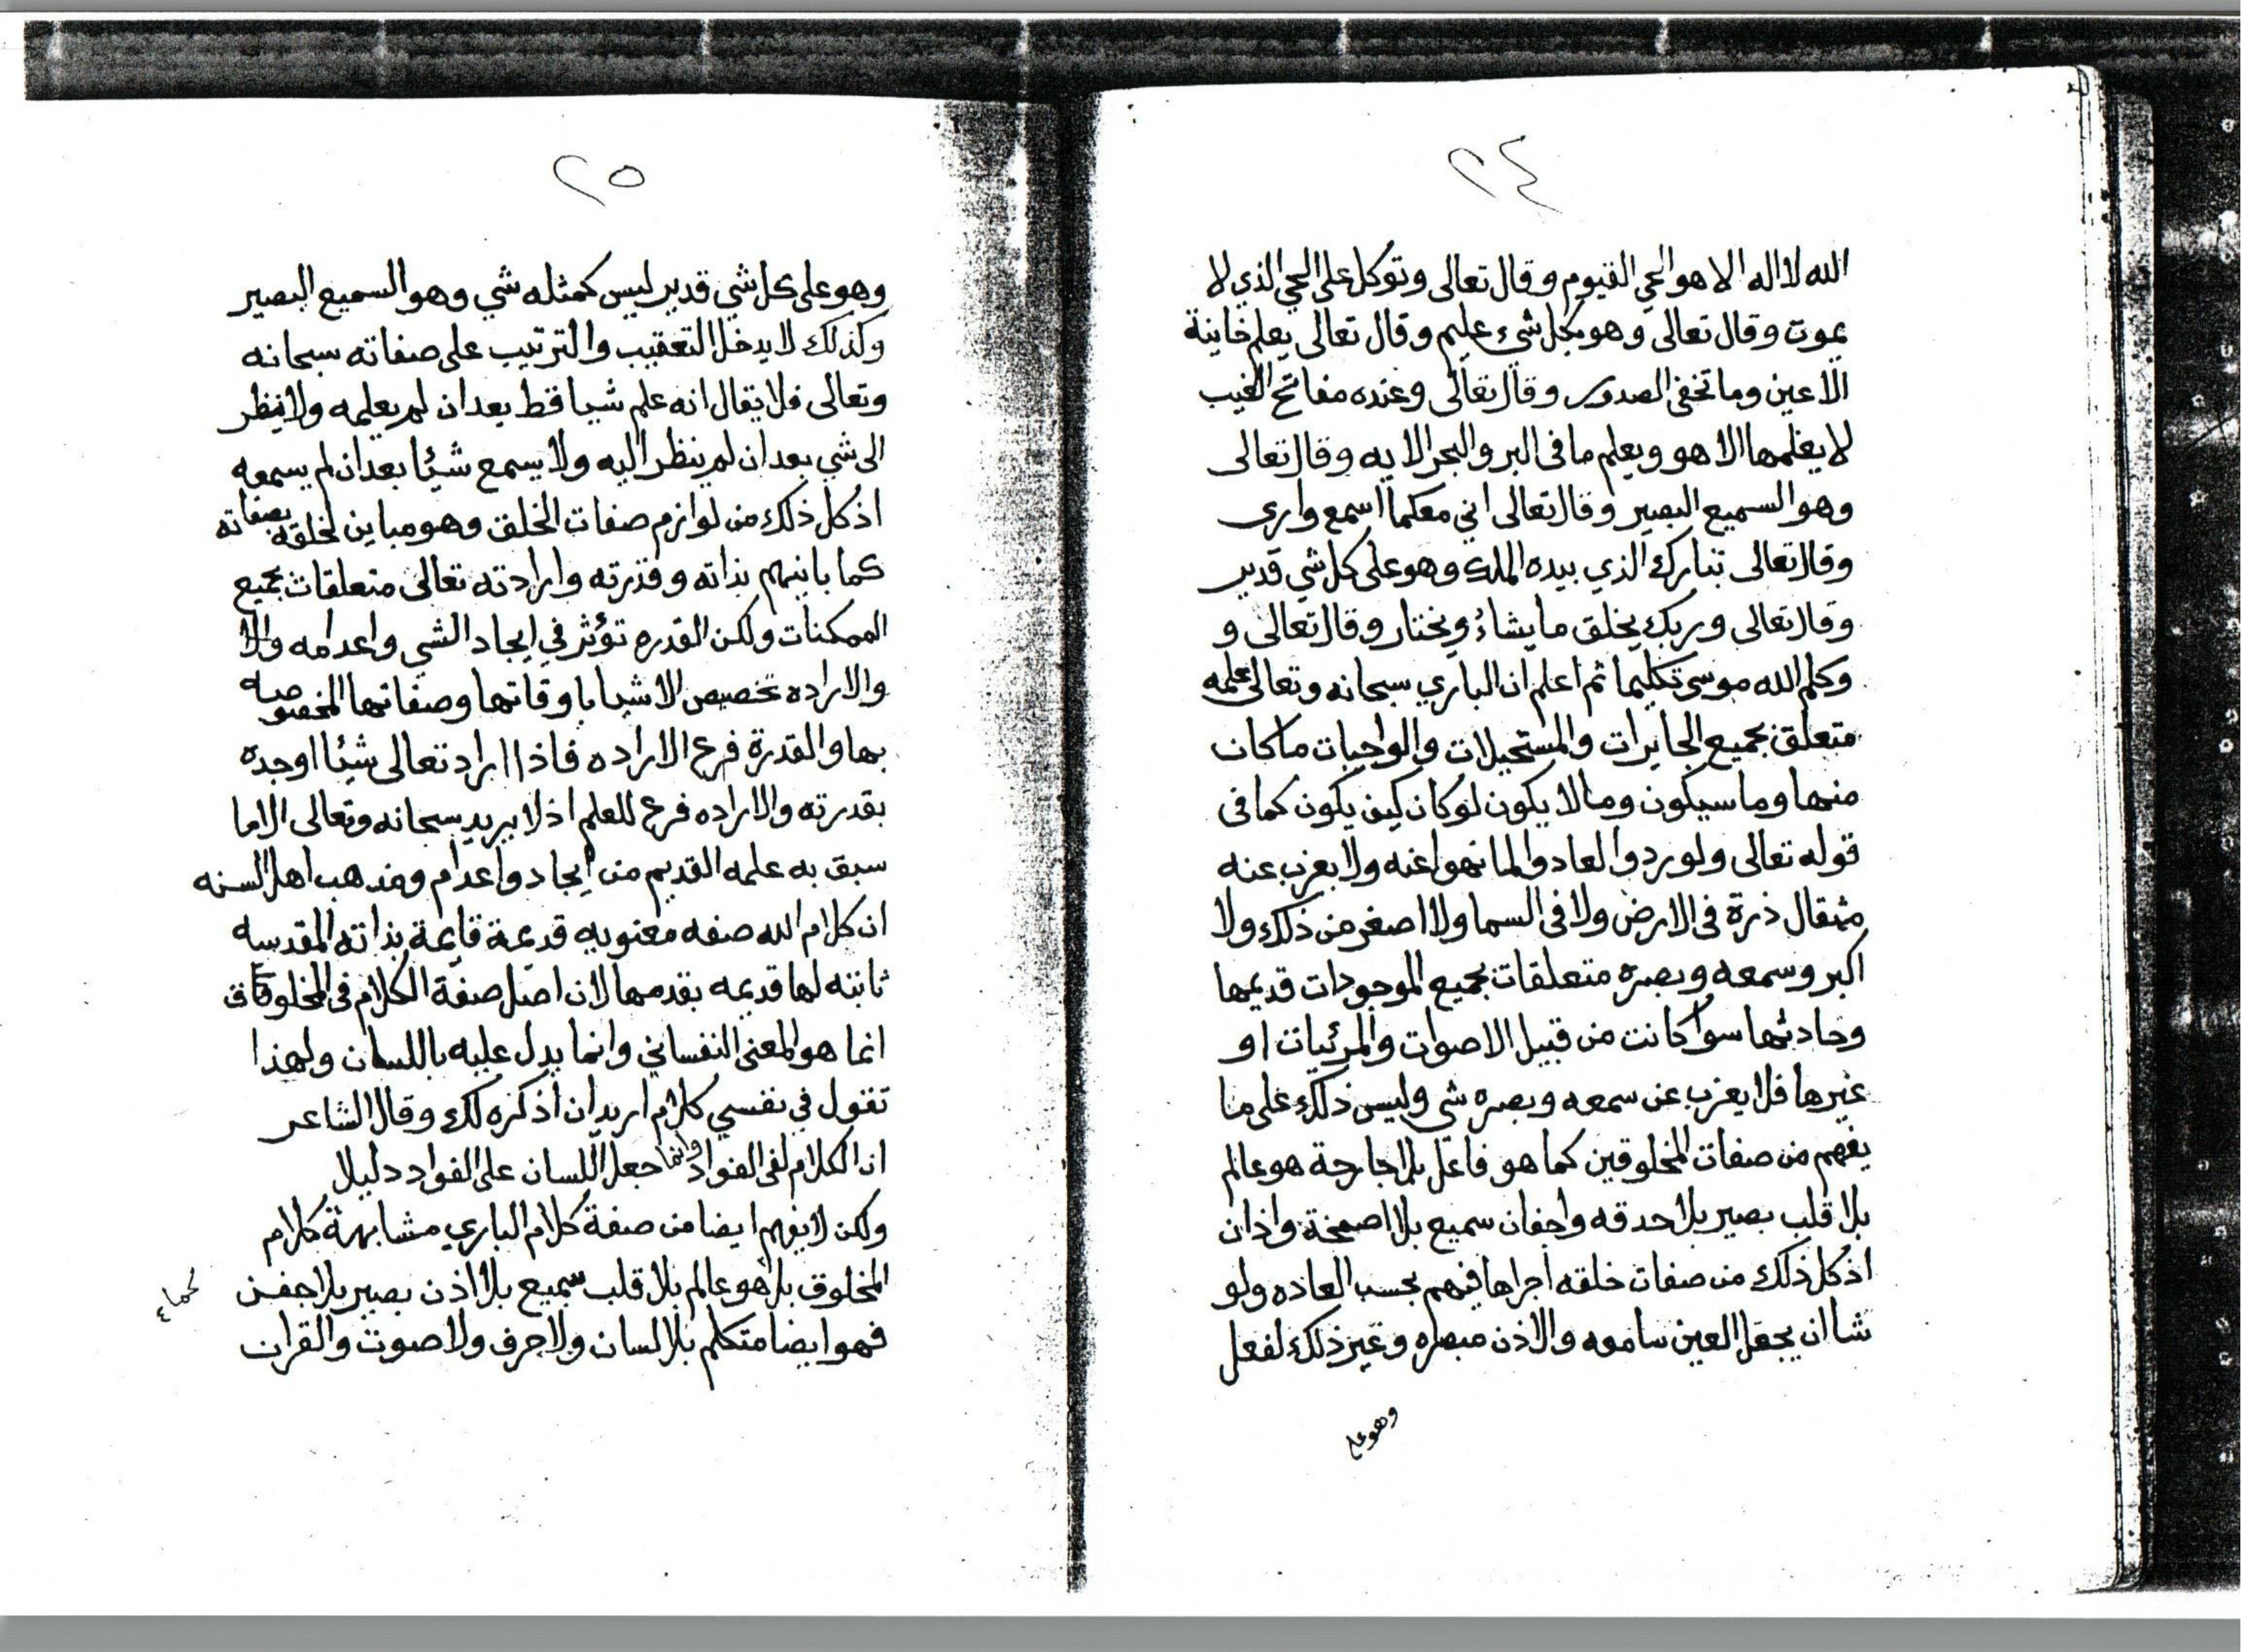 ٢٤
الله لا اله الا هو الحي القيوم وقال تعالى وتوكل على الحي الذي لا
يموت وقال تعالى وهو بكل شيء عليم وقال تعالى يعلم خاينة
الاعين وما تخفى الصدور وقال تعالى وعنده مفاتح الغيب
لا يعلمها الا هو ويعلم ما فى البر والبحر الايه وقال تعالى
وهو السميع البصير وقال تعالى انني معكما اسمع وارى
وقال تعالى تبارك الذي بيده الملك وهو على كل شي قدير
وقال تعالى وربك يخلق ما يشاء ويختار وقال تعالى و
وكلم الله موسى تكليما ثم اعلم ان الباري سبحانه وتعالى علمه
متعلق بجميع الجايزات والمستحيلات والواجبات ما كان
منها وما سيكون وما لا يكون لو كان كيف يكون كما فى
قوله تعالى ولو ردوا لعادوا لما نهوا عنه ولا يعزب عنه
مثقال ذرة فى الارض ولا فى السما ولا اصغر من ذلك ولا
اكبر وسمعه وبصره متعلقات بجميع الموجودات قديمها
وحادثها سوا كانت من قبيل الاصوات والمرئيات او
غيرها فلا يعزب عن سمعه وبصره شي وليس ذلك على ما
يفهم من صفات المخلوقين كما هو فاعل بلا جارحة هو عالم
بلا قلب بصير بلا حدقه واجفان سميع بلا اصمخة واذان
اذ كل ذلك من صفات خلقه اجراها فيهم بحسب العاده ولو
شا ان يجعل العين سامعه والاذن مبصره وغير ذلك لفعل
وهو على
٢٥
وهو على كل شي قدير ليس كمثله شي وهو السميع البصير
وكذلك لا يدخل التعقيب والترتيب على صفاته سبحانه
وتعالى فلا يقال انه علم شيا قط بعد ان لم يعلمه ولا ينظر
الى شي بعد ان لم ينظر اليه ولا يسمع شيئا بعد ان لم يسمعه
اذ كل ذلك من لوازم صفات الخلق وهو مباين لخلقه بصفاته
كما باينهم بذاته وقدرته وارادته تعالى متعلقات بجميع
الممكنات ولكن القدره تؤثر في ايجاد الشي واعدامه والا
والاراده تخصيص الاشيا باوقاتها وصفاتها المخصوصه
بها والقدرة فرع الاراده فاذا اراد تعالى شيئا اوجده
بقدرته والاراده فرع للعلم اذ لا يريد سبحانه وتعالى الا ما
سبق به علمه القديم من ايجاد واعدام ومذهب اهل السنه
ان كلام الله صفه معنويه قديمة قايمة بذاته المقدسه
ثابته لها قديمه بقدمها لان اصل صفة الكلام فى المخلوقات
انما هو المعنى النفساني وانما يدل عليه باللسان ولهذا
تقول في نفسي كلام اريد ان اذكره لك وقال الشاعر
ان الكلام لفى الفواد وانما جعل اللسان على الفواد دليلا
ولكن لا يفهم ايضا من صفة كلام الباري مشابهة كلام
المخلوق بل هو عالم بلا قلب سميع بلا اذن بصير بلا جفن
فهو ايضا متكلم بلا لسان ولا حرف ولا صوت والقران